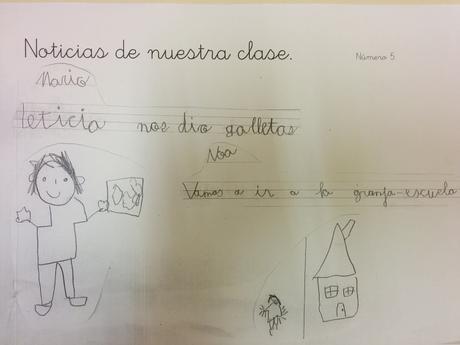 Noticias de nuestra clase.
Número 5
Mario
Leticia nos dio galletas
Noa
Vamos a ir a la granja-escuela